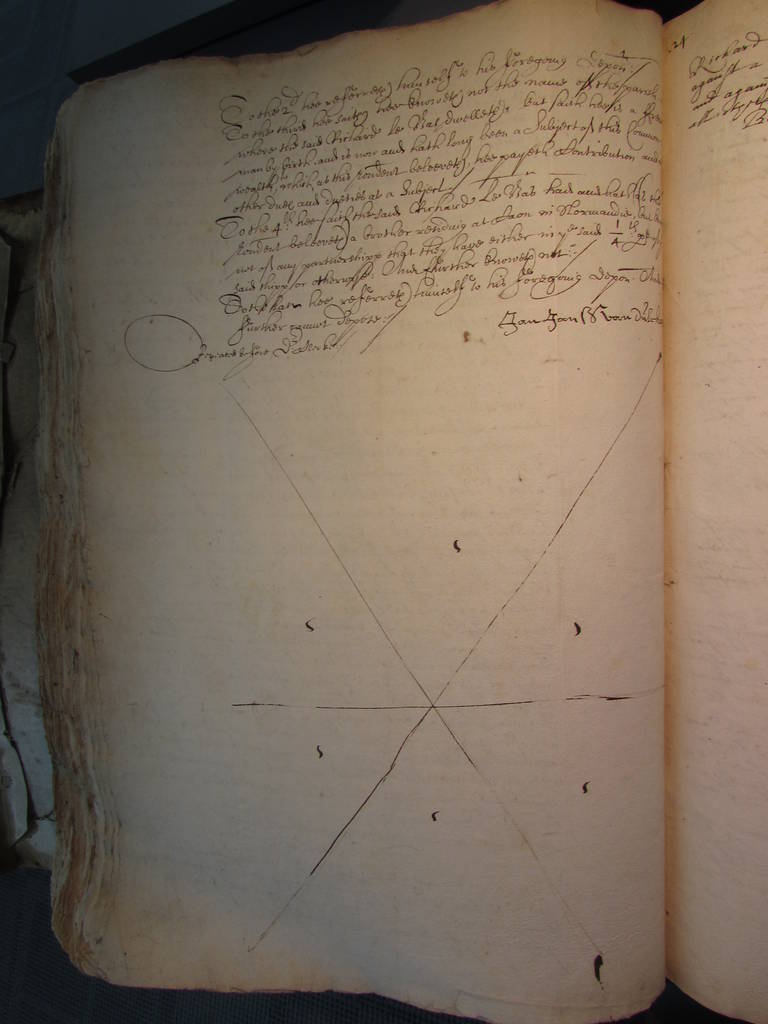 To the 2d hee referreth himselfe to his foregoing depon:
To the third hee saith hee knoweth not the name of the parish
where the said Richard Le Bas dwelleth, but saith hee is a
man by birth and is now and hath long been a Subject of this Common
wealth, which as this rendent beleeveth, hee payeth Contribution and
other dues and duties as a Subject
To the 4th hee saith the said Richard Le Bas had and hath (as this
rendent beleeveth) a brother residing at Caon in Normandie, but
not of any partnershipp that they have either in ye said 1/4th
said shipp or otherwise: And further knoweth not:
To the last hee referreth himselfe to his foregoing depon: And
further cannot depose.
Repeated before Dr Clerke:
Jan Jan
24
Richard
against a
and against